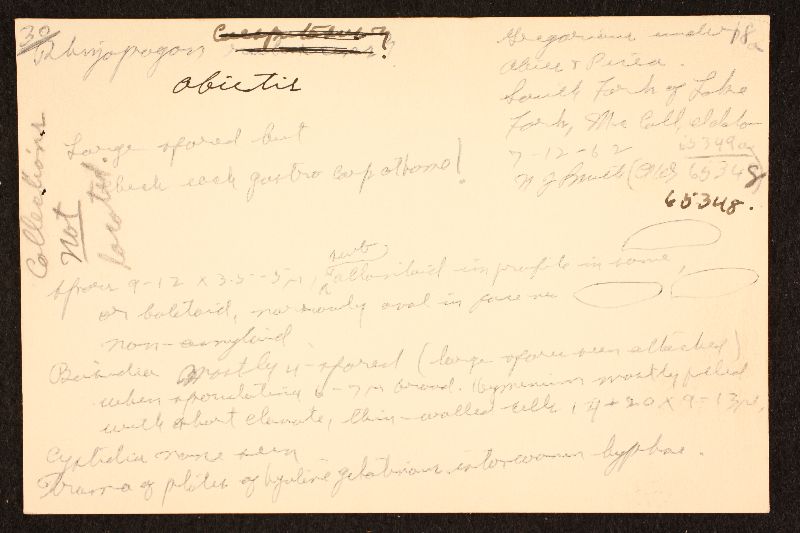 Rhizopogon
abietis
Gregarious under
Abies & Picea.
South Fork of Lake
Fork, Mc Call, Idaho
7-12-62
65349
65348.
Large spored but
check each gastro carp at home!
Collections
Not
located.
Spores 9-12 x 3.5-5µ, sub allantoid in profile in some,
or boletoid, narrowly oval in face view
non-amyloid.
Basidia mostly 4-spored (large spores seen attached)
when sporulating 6-7µ broad. Hymenium mostly
with short clavate, thin-walled cells 14-20 x 9-13µ,
Cystidia none seen
Trama of plates of hyaline gelatinous interwoven hyphae.